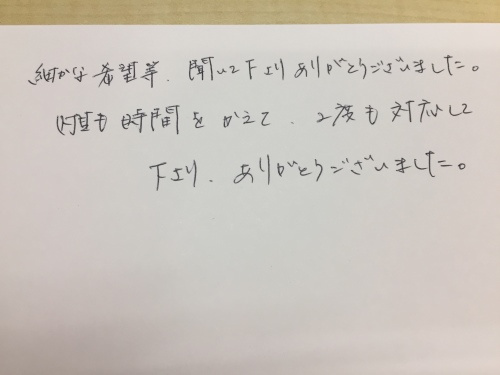 細かな希望等、聞いて下さりありがとうございました。
何度も時間をかえて、2度も対応して
下さり、ありがとうございました。